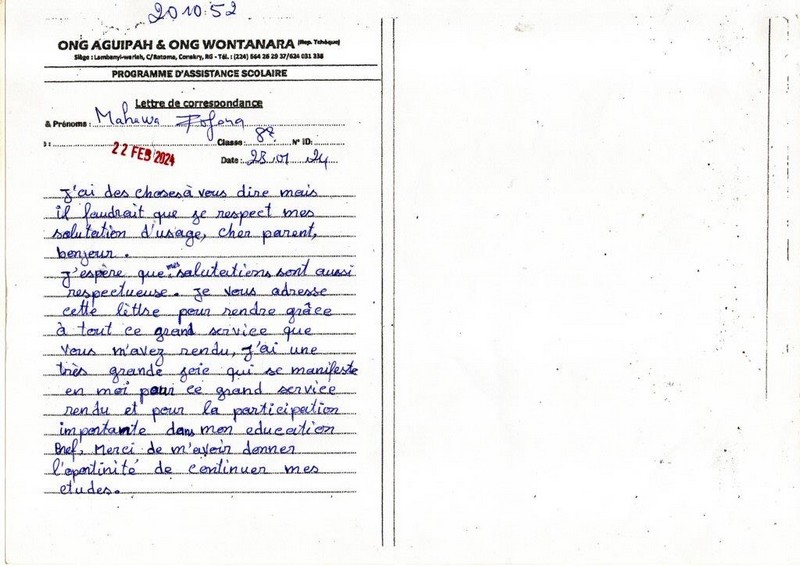 2010:52
ONG AGUIPAH & ONG WONTANARA (Rep. Tchèque)
Siège : Lambanyi-wariah, C/Ratoma, Conakry, RG - Tél. : (224) 664 26 29 37/624 031 338
PROGRAMME D'ASSISTANCE SCOLAIRE
Lettre de correspondance
& Prénoms : Mahawa Fofana
Classe : 8e N° ID:
22 FEB 2024
Date : 23.01 24
J'ai des choses à vous dire mais
il faudrait que je respect mes
salutation d'usage, cher parent,
bonjour.
J'espère que mes salutations sont aussi
respectueuse. Je vous adresse
cette lèttre pour rendre grâce
à tout ce grand service que
vous m'avez rendu, j'ai une
très grande joie qui se manifeste
en moi pour ce grand service
rendu et pour la participation
importante dans mon education
Bref, Merci de m'avoir donner
l'oportinité de continuer mes
etudes.